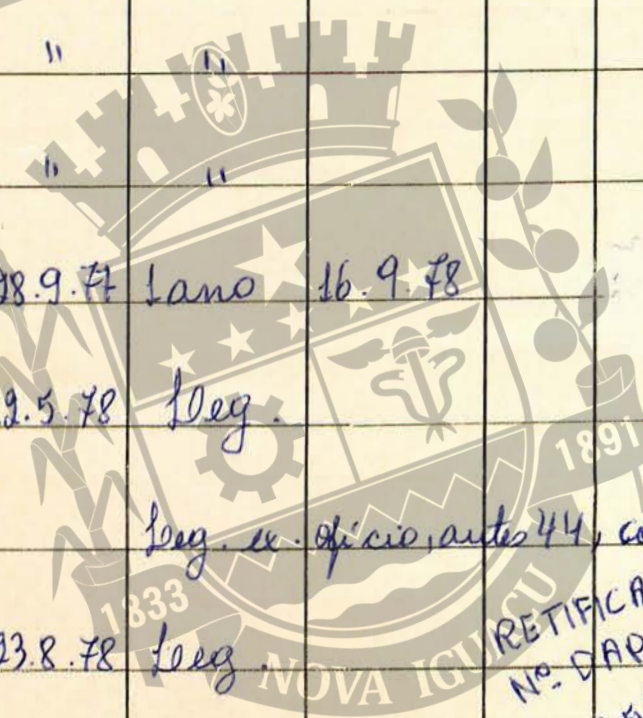 " "
" "
18.9.77 1 ano 16.9.78
9.5.78 Leg.
Leg. ex. ofício, antes 44,
23.8.78 Leg.
RETIFICA
Nº DA
1833
1891
NOVA IGUAÇU